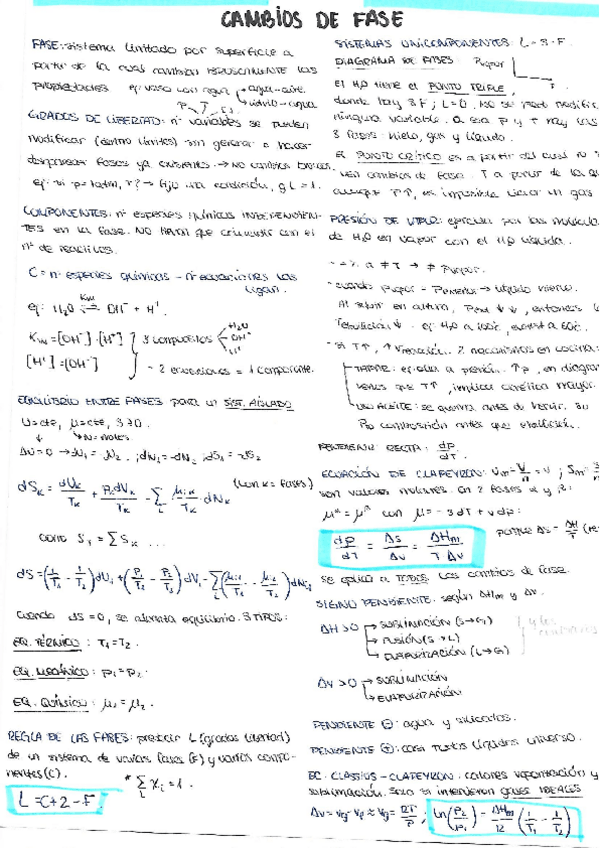 CAMBIOS DE FASE
FASE: sistema limitado por superficie a
partir de la cual cambian bruscamente las
propiedades. ej: vaso con agua agua-aire.
vidrio-agua
P, T, [ ]
GRADOS DE LIBERTAD: nº variables se pueden
modificar (dentro límites) sin generar o hacer
desaparecer fases ya existentes. → No cambios bruscos.
ej: si p=1atm, T? → fijo una condición, g L = 1.
COMPONENTES: nº especies químicas INDEPENDIEN-
TES en la fase. NO tienen que coincidir con el
nº de reactivos.
C = nº especies químicas - nº ecuaciones las
ligan.
ej: H₂O ⇌ OH⁻ + H⁺
Kw
Kw = [OH⁻]·[H⁺] 3 compuestos H₂O
OH⁻
H⁺
[H⁺] = [OH⁻] - 2 ecuaciones = 1 componente.
EQUILIBRIO ENTRE FASES para un SIST. AISLADO
U=cte, V=cte, S≥0.
N=moles
ΔU=0 → dU₁=-dU₂ ; dN₁=-dN₂ ; dS₁=-dS₂
dS_K = dU_K/T_K + P_K dV_K/T_K - Σ μ_iK/T_K · dN_K (con K = fases)
como S_T = Σ S_K ...
dS = (1/T₁ - 1/T₂) dU₁ + (P₁/T₁ - P₂/T₂) dV₁ - Σ(μ_i1/T₁ - μ_i2/T₂) dN_i1
Cuando dS = 0, se alcanza equilibrio. 3 TIPOS:
EQ. TÉRMICO: T₁=T₂
EQ. MECÁNICO: P₁=P₂.
EQ. QUÍMICO: μ₁=μ₂.
REGLA DE LAS FASES: predecir L (grados libertad)
de un sistema de varias fases (F) y varios compo-
nentes (C).
* Σ x_i = 1.
L = C+2-F
SISTEMAS UNICOMPONENTES: L=3-F.
DIAGRAMA DE FASES: Pvapor
T.
El H₂O tiene el PUNTO TRIPLE,
donde hay 3F; L=0. No se puede modific
ninguna variable. a esa p y T hay las
3 fases: hielo, gas y líquido.
El PUNTO CRÍTICO es a partir del cual no
ven cambios de fase. T a partir de la
aunque P↑, es imposible licuar un gas
PRESIÓN DE VAPOR: ejercida por las molécula
de H₂O en vapor con el H₂O líquida.
a ≠ T → ≠ Pvapor.
- cuando Pvapor = Pexterior → líquido hierve.
Al subir en altura, Pext ↓↓, entonces
Tebullición ↓. ej: H₂O a 100ºC,
- si T↑, ↑Vreacción. 2 mecanismos en cocina:
TAPAR: ej: olla a presión. ↑p, en diagram
vemos que T↑, implica cinética mayor.
USO ACEITE: se quema antes de hervir. Su
descomposición antes que ebullición.
PENDIENTE RECTA: dp/dT.
ECUACIÓN DE CLAPEYRON: Vm = V/n = v ; Sm = S/
son valores molares. En 2 fases α y β:
μ^α = μ^β con μ = -s dT + v dp:
dp/dT = Δs/Δv = ΔHm/T Δv
porque Δs = ΔH/T
Se aplica a TODOS los cambios de fase.
SIGNO PENDIENTE: según ΔHm y Δv.
ΔH>0 SUBLIMACIÓN (S→G)
FUSIÓN (S→L)
EVAPORIZACIÓN (L→G)
y los contrarios
Δv>0 SUBLIMACIÓN
EVAPORIZACIÓN
PENDIENTE ⊖: agua y silicatos.
PENDIENTE ⊕: casi todos líquidos universo.
EC. CLASIUS-CLAPEYRON: calores vaporización y
sublimación. Solo si intervienen gases IDEALES
Δv = Vg - Vl ≈ Vg = RT/P ; ln(P₂/P₁) = ΔHm/R (1/T₁ - 1/T₂)